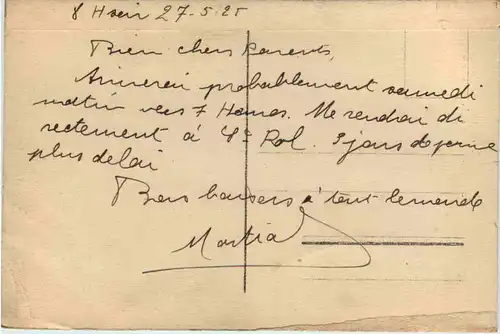 27-5-25
Bien chers parents,
Arriverai probablement samedi
matin vers 7 Heures. Me rendrai di
rectement à St Pol. 3 jours de perme
plus delai
Bons baisers à tout le monde
Martial